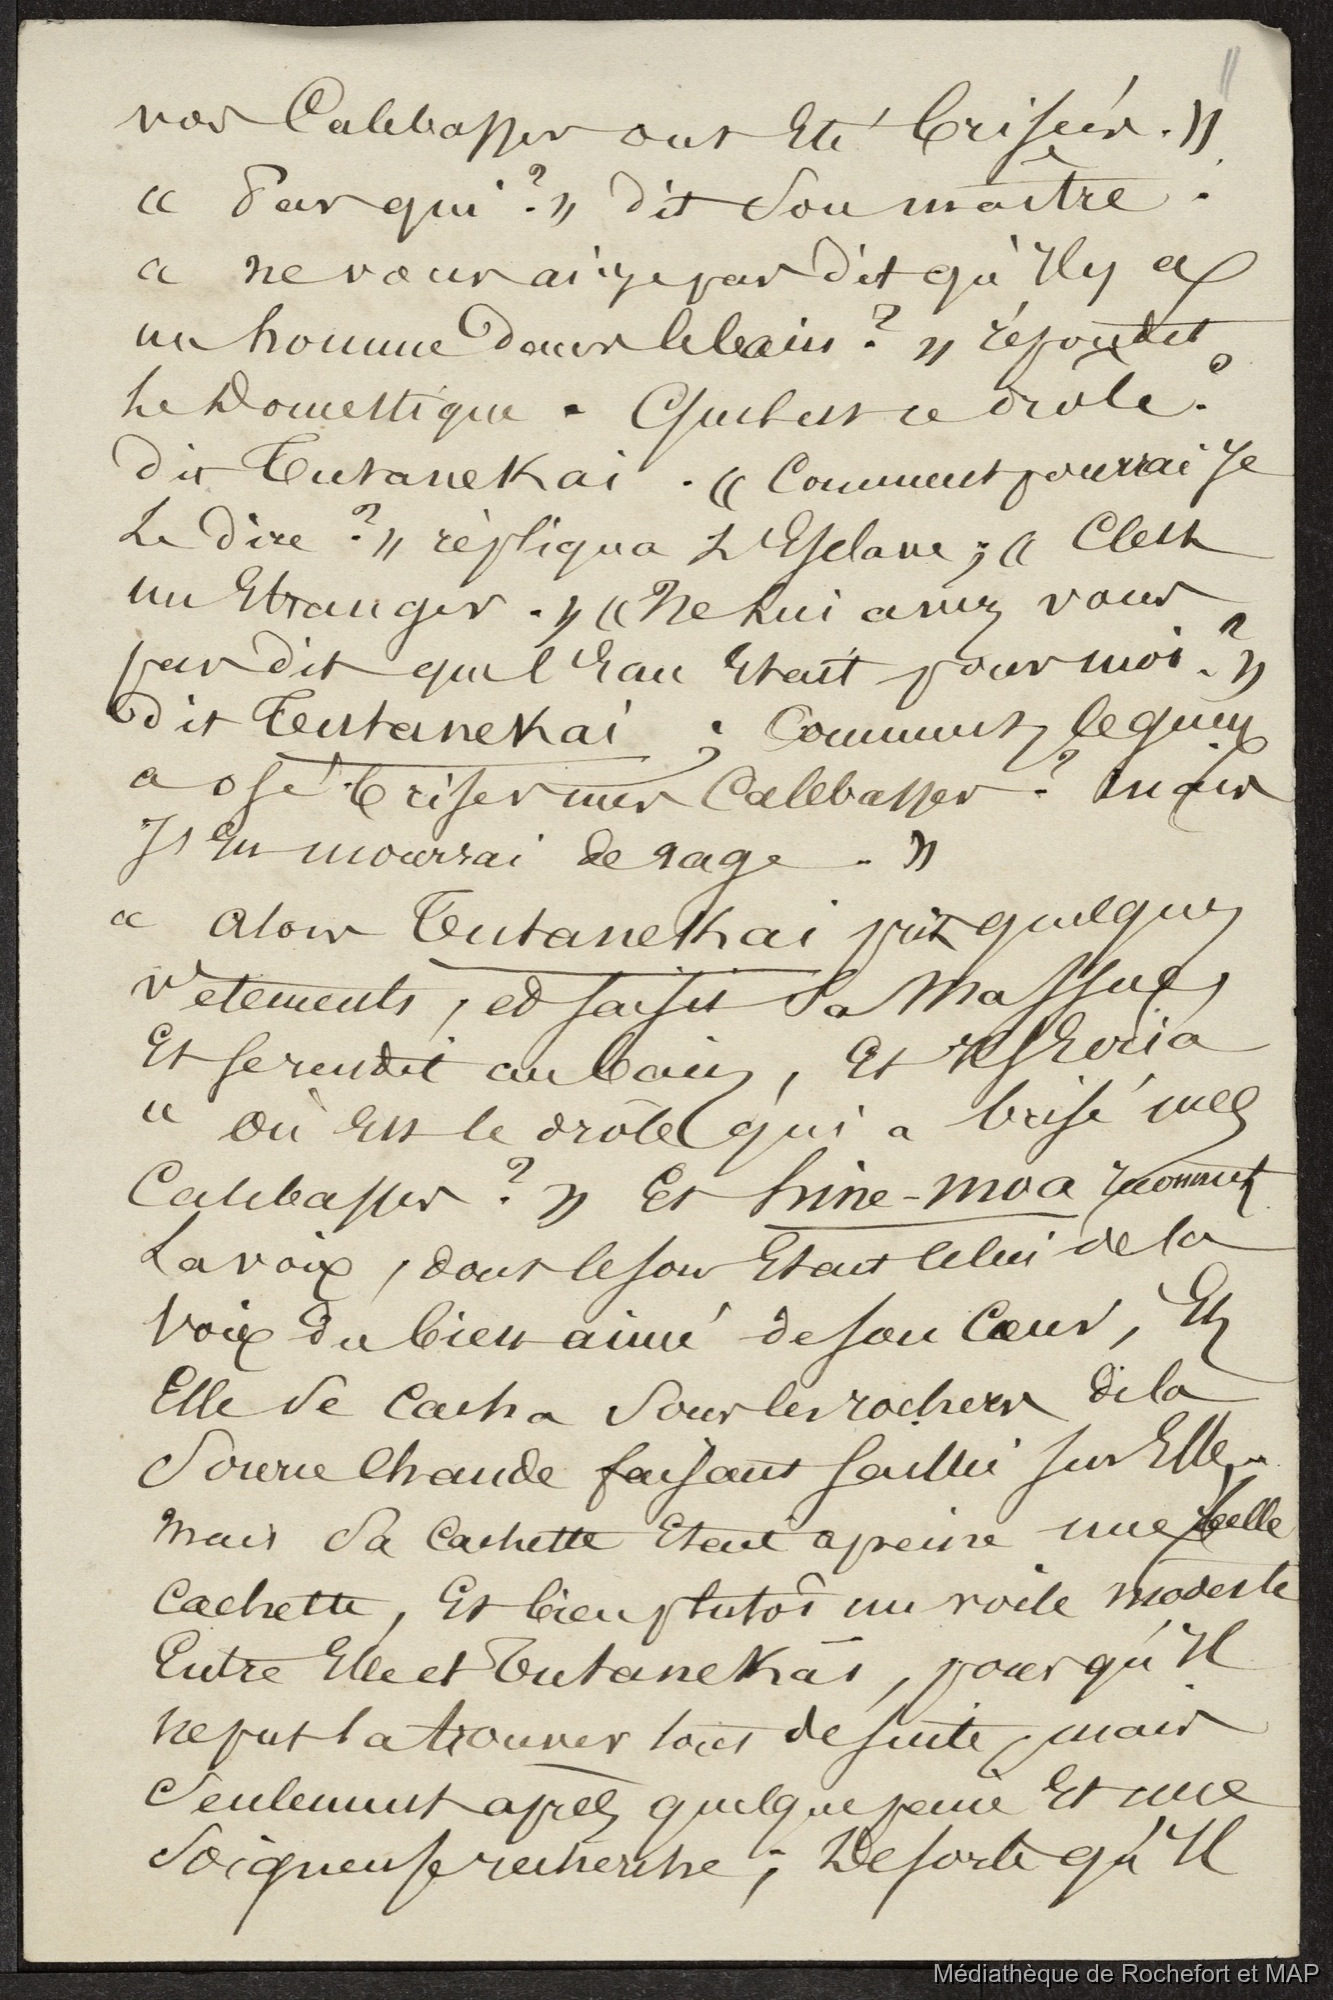 11
vos Calebasses ont Eté brisées. »
« Par qui ? » dit Son maître.
« ne vous ai je pas dit qu'Il y a
un homme dans le bain ? » répondit
Le Domestique. Quel est ce drôle ?
dit Tutanekai. « Comment pourrai Je
Le Dire ? » répliqua L'Esclave ; « C'est
un Etranger. » « Ne Lui avez vous
pas dit que l'Eau Etait pour moi ? »
dit Tutanekai ; Comment, le gueux
a osé briser mes Calebasses ? mais
J'en mourrai de rage. »
« alors Tutanekai prit quelques
Vetements, et saisit Sa Massue,
Et se rendit au bain, Et
« Où Est le drôle qui a brisé mes
Calebasses ? » Et hine-moa reconnut
La voix, dont le son Etait celui de la
Voix du bien aimé de son Cœur, Et
Elle Se Cacha Sous les rochers de la
Source Chaude faisant saillie sur Elle.
Mais Sa Cachette Etait a peine une belle
Cachette, Et bien plutôt un voile modeste
Entre Elle et Tutanekai, pour qu'Il
ne put la trouver tout de suite, mais
Seulement après quelque peine Et une
Soigneuse recherche ; De sorte qu'Il
Médiathèque de Rochefort et MAP